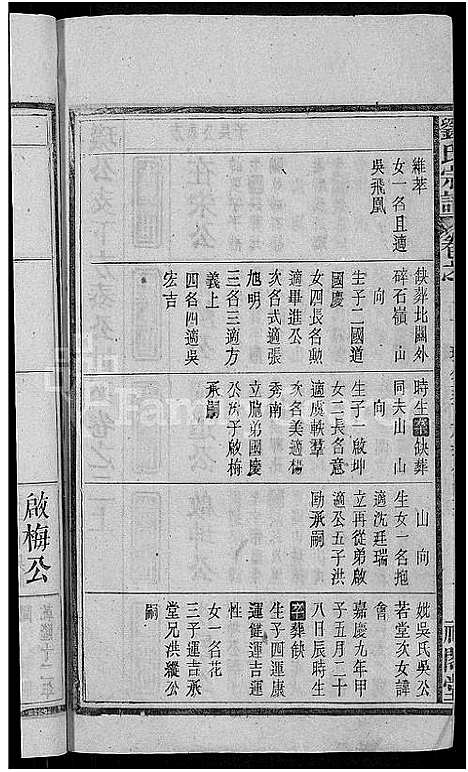 劉氏宗譜
卷之
維萃
女一名且適
吳飛鳳
缺葬北關外
碎石嶺 山
向
生子二國道
國慶
女四長名勲
適畢進公
次名式適張
旭明
三名三適方
義上
四名四適吳
宏吉
時生卒缺葬
同夫山 山
向
生子一啟坤
女二長名意
適虞軼羣
次名美適楊
秀南
立胞弟國慶
公次子啟梅
承嗣
山 向
生女一名抱
適沈廷瑞
立再從弟啟
適公五子洪
勛承嗣
妣吳氏吳公
若堂次女諱
會
嘉慶九年甲
子五月二十
八日辰時生
卒葬缺
生子四運康
運健運吉運
性
女一名花
三子運吉承
堂兄洪縱公
嗣
啟梅公